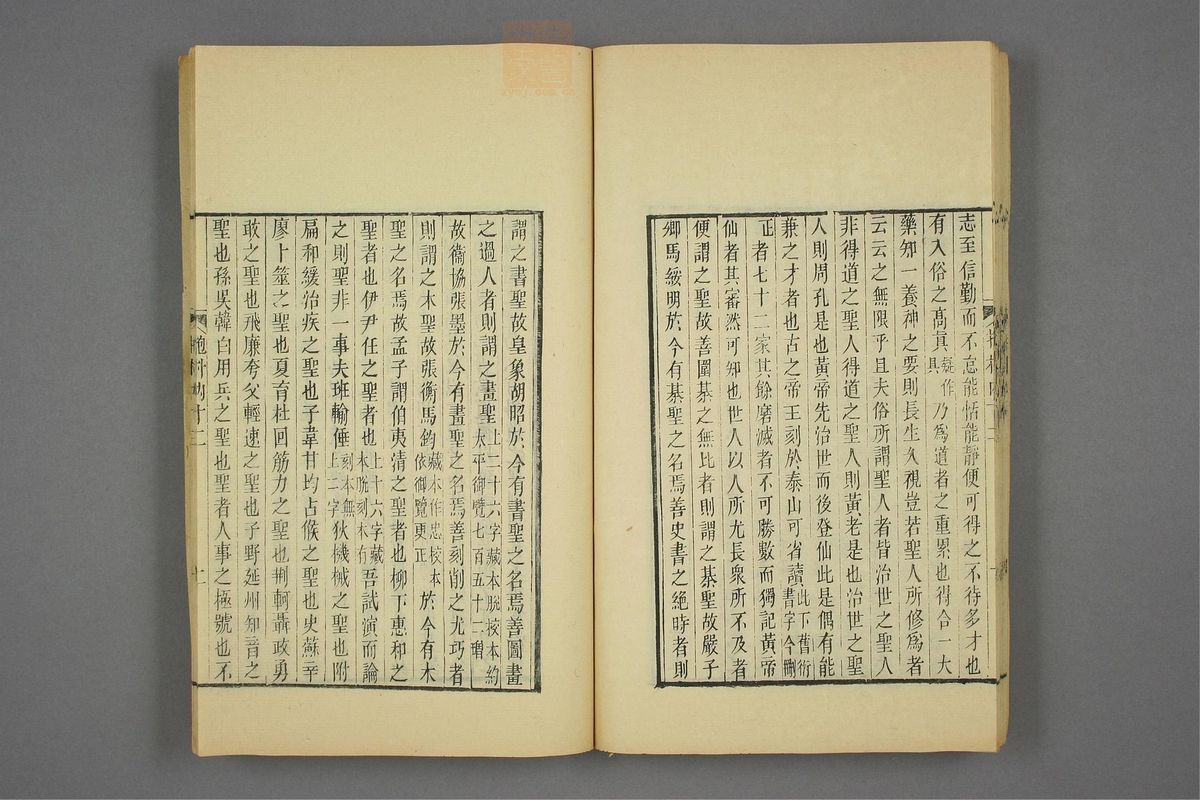 志至信勤而不怠能恬能靜便可得之不待多才也
有入俗之高真疑作具乃爲道者之重累也得合一大
藥知一養神之要則長生久視豈若聖人所修爲者
云云之無限乎且夫俗所謂聖人者皆治世之聖人
非得道之聖人得道之聖人則黃老是也治世之聖
人則周孔是也黃帝先治世而後登仙此是偶有能
兼之才者也古之帝王刻於泰山可省讀此下舊衍書字今刪
正者七十二家其餘磨滅者不可勝數而獨記黃帝
仙者其審然可知也世人以人所尤長衆所不及者
便謂之聖故善圍棊之無比者則謂之棊聖故嚴子
卿馬綏明於今有棊聖之名焉善史書之絕時者則
謂之書聖故皇象胡昭於今有書聖之名焉善圖畫
之過人者則謂之畫聖上二十六字藏本脫校本約太平御覽七百五十二增
故衞協張墨於今有畫聖之名焉善刻削之尤巧者
則謂之木聖故張衡馬鈞藏本作忠校本依御覽更正於今有木
聖之名焉故孟子謂伯夷清之聖者也柳下惠和之
聖者也伊尹任之聖者也上十六字藏本脫刻本有吾試演而論
之則聖非一事夫班輸倕刻本無上二字狄機械之聖也附
扁和緩治疾之聖也子韋甘均占候之聖也史蘇辛
廖卜筮之聖也夏育杜回筋力之聖也荆軻聶政勇
敢之聖也飛廉夸父輕速之聖也子野延州知音之
聖也孫吳韓白用兵之聖也聖者人事之極號也不
抱朴內十二